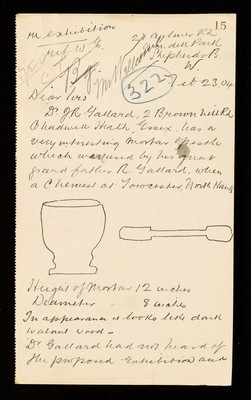 15
re exhibition
27 Aylmer Rd
ref W.E.
Park
Shepherds B.
W
322
Feb 23. 04
Dear Sirs
Dr J R Gallard, 2 Brown Hill Rd
Chadwell Heath, Essex. has a
very interesting mortar & pestle
which was used by his great
grand father R. Gallard, when
a Chemist at Towcester, North Hants
Height of Mortar 12 inches
Diameter - 8 inches
In appearance it looks like dark
walnut wood -
Dr Gallard had not heard of
the proposed exhibition and